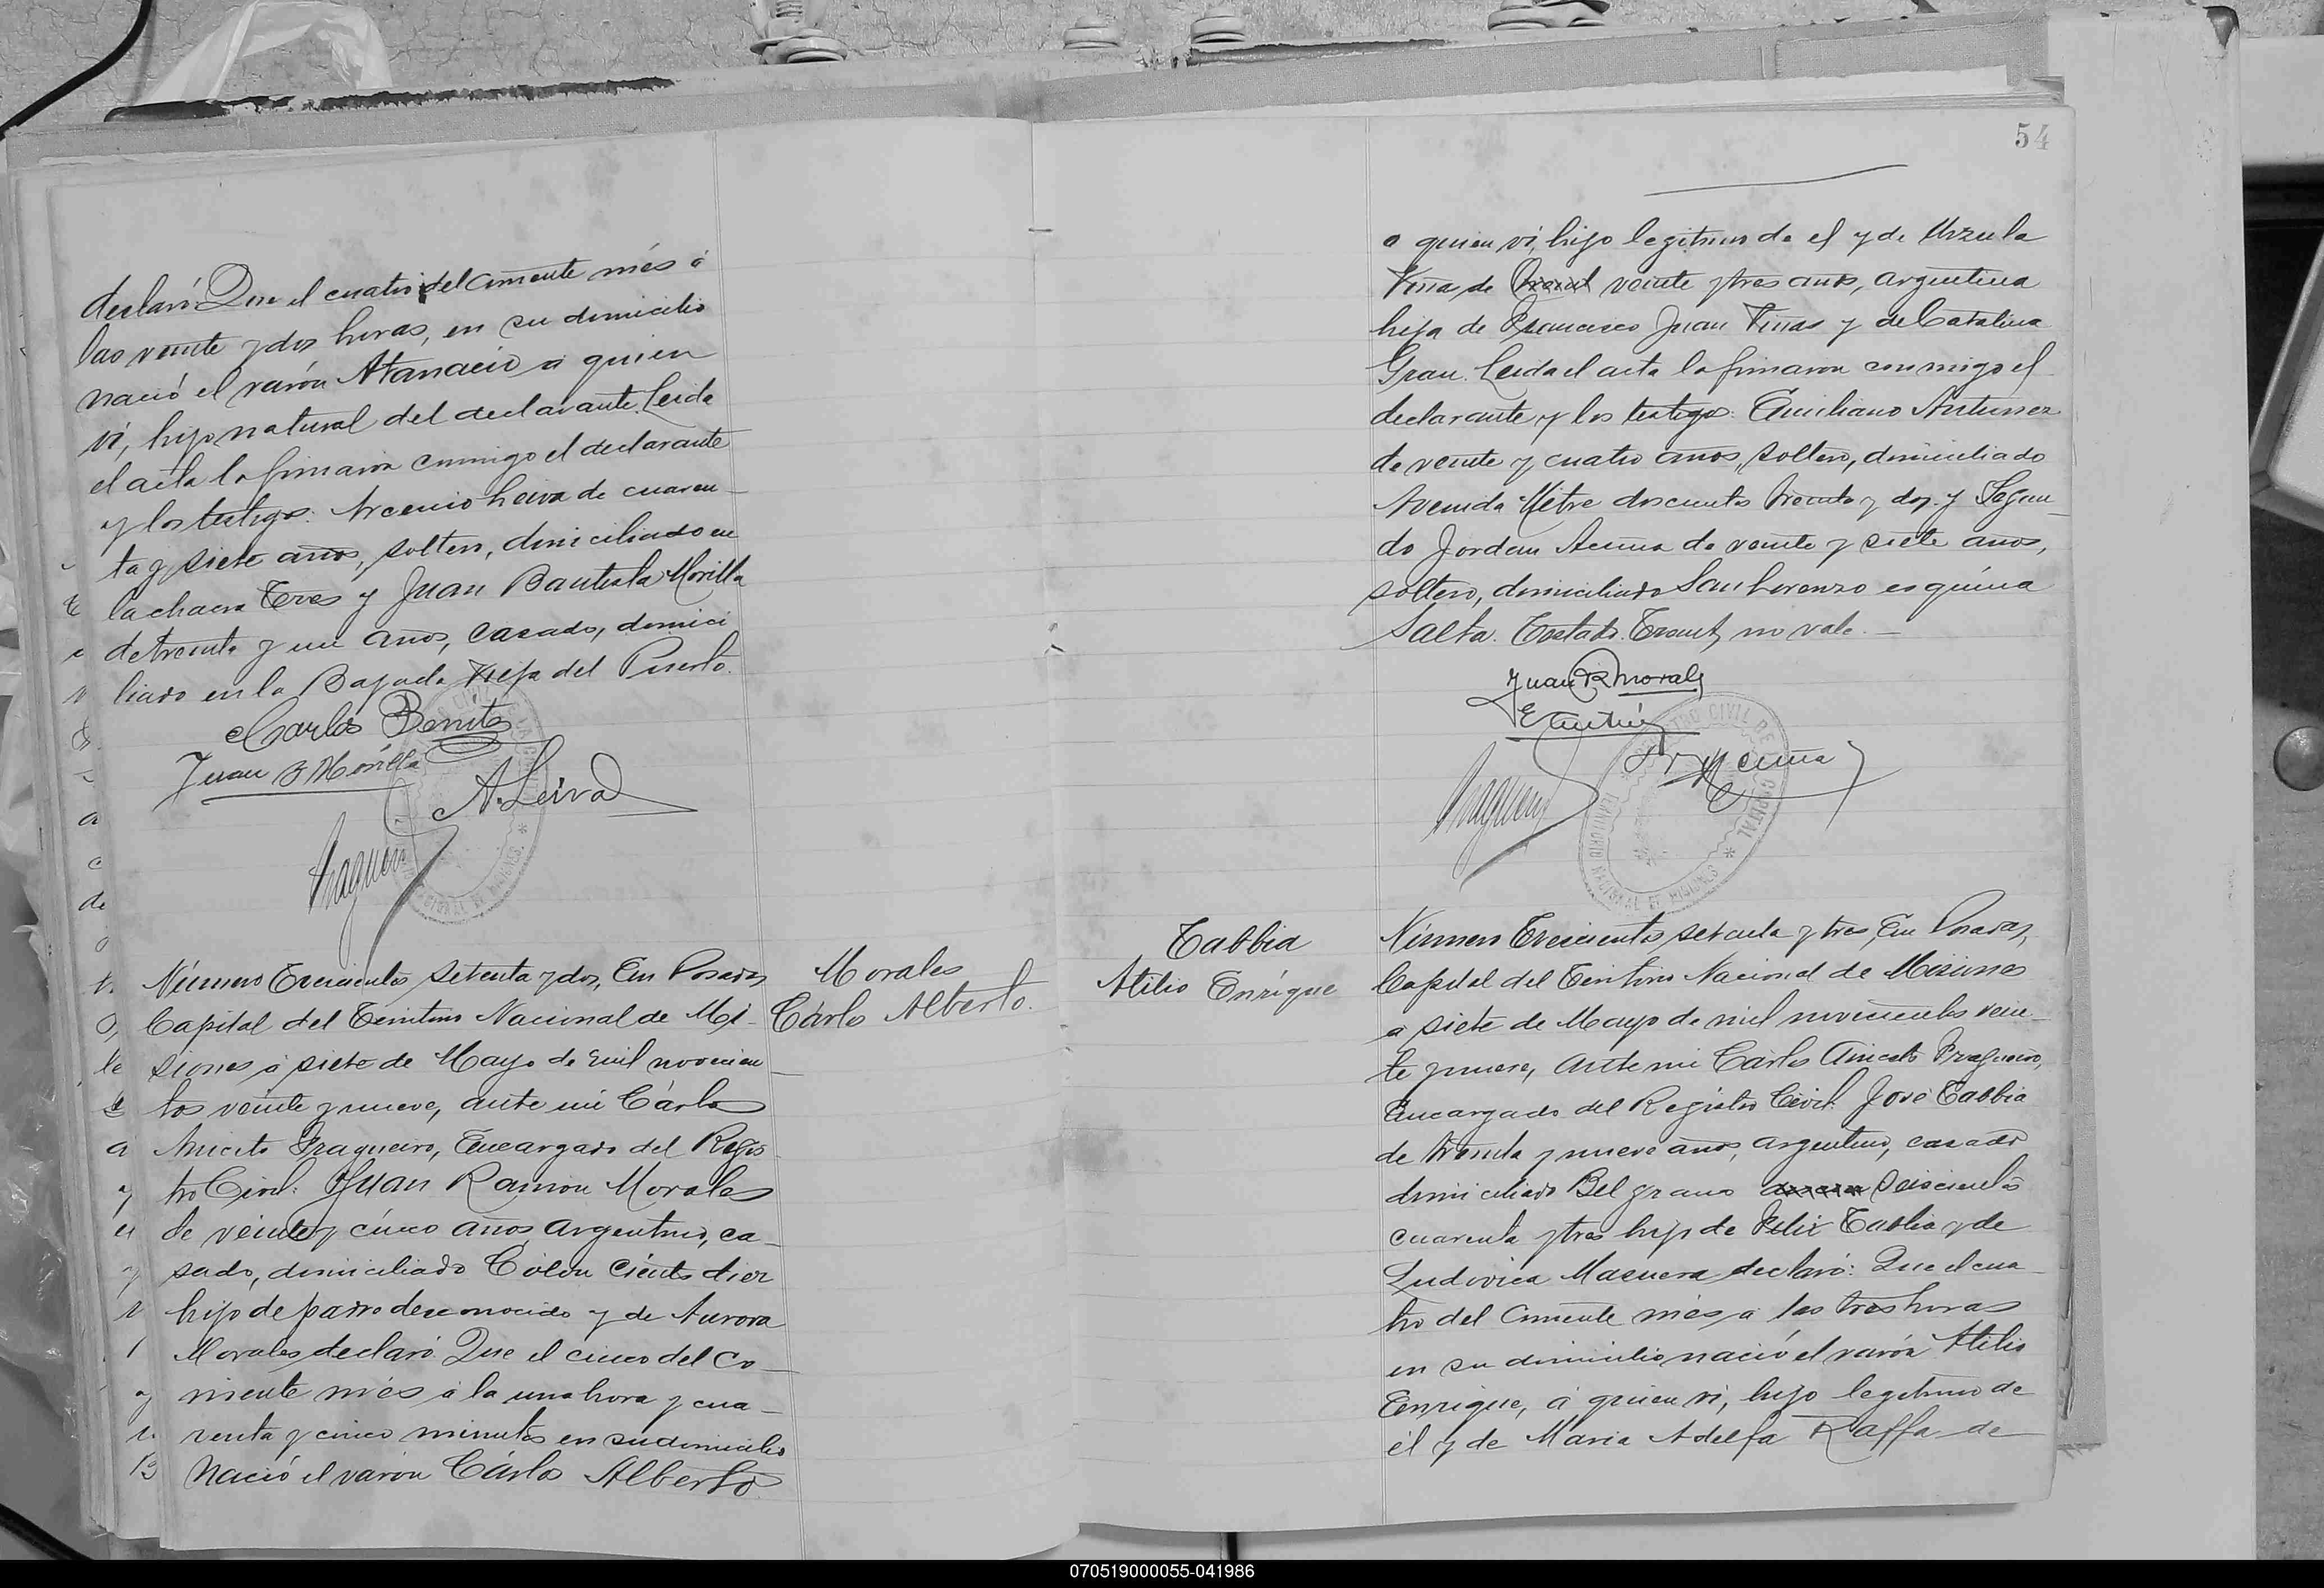 declaró: Que el cuatro del corriente més á
las veinte y dos horas, en su domicilio
nació el varón Atanacio á quien
vi, hijo natural del declarante. Leida
el acta la firmaron conmigo el declarante
y los testigos: Arcenio Leiva de cuaren_
ta y siete años, soltero, domiciliado en
la chacra Tres y Juan Bautista Morilla
de treinta y un años, casado, domici
liado en la Bajada Vieja del Puerto.
Carlos Benites
Juan B Morilla
A. Leiva
Número Trescientos setenta y dos, En Posadas
Capital del Territorio Nacional de Mi_
siones á siete de Mayo de mil novecien_
tos veinte y nueve, ante mi Cárlos
Aniceto Fragueiro, Encargado del Regis_
tro Civil: Juan Ramon Morales
de veinte y cinco años, argentino, ca_
sado, domiciliado Colon Ciento diez
hijo de padre desconocido y de Aurora
Morales declaró: Que el cinco del co_
rriente més á la una hora y cua_
renta y cinco minutos en su domicilio
nació el varón Cárlos Alberto
Morales
Cárlos Alberto.
54
a quien vi, hijo legitimo de el y de Urzula
Viña de veinte y tres años, argentina
hija de Francisco Juan Viñas y de Catalina
Grau. Leida el acta la firmaron conmigo el
declarante y los testigos: Emiliano Antunez
de veinte y cuatro años, soltero, domiciliado
Avenida Mitre doscientos treinta y dos y Segun_
do Jordan Acuña de veinte y siete años,
soltero, domiciliado San Lorenzo esquina
Salta. Testado: Treint, no vale._
Juan R Morales
Acuña
REGISTRO CIVIL DE LA CAPITAL
TERRITORIO NACIONAL DE MISIONES
Tabbia
Atilio Enrique
Número Trescientos setenta y tres, En Posadas,
Capital del Territorio Nacional de Misiones
a siete de Mayo de mil novecientos vein_
te y nueve, ante mi Carlos Aniceto Fragueiro,
Encargado del Registro Civil: José Tabbia
de treinta y nueve años, argentino, casado
domiciliado Belgrano seiscientos
cuarenta y tres hijo de Felix Tabbia y de
Ludovica Masuera declaró: Que el cua_
tro del corriente més a las tres horas
en su domicilio nació el varón Atilio
Enrique, á quien vi, hijo legitimo de
él y de Maria Adelfa Raffa de
070519000055-041986